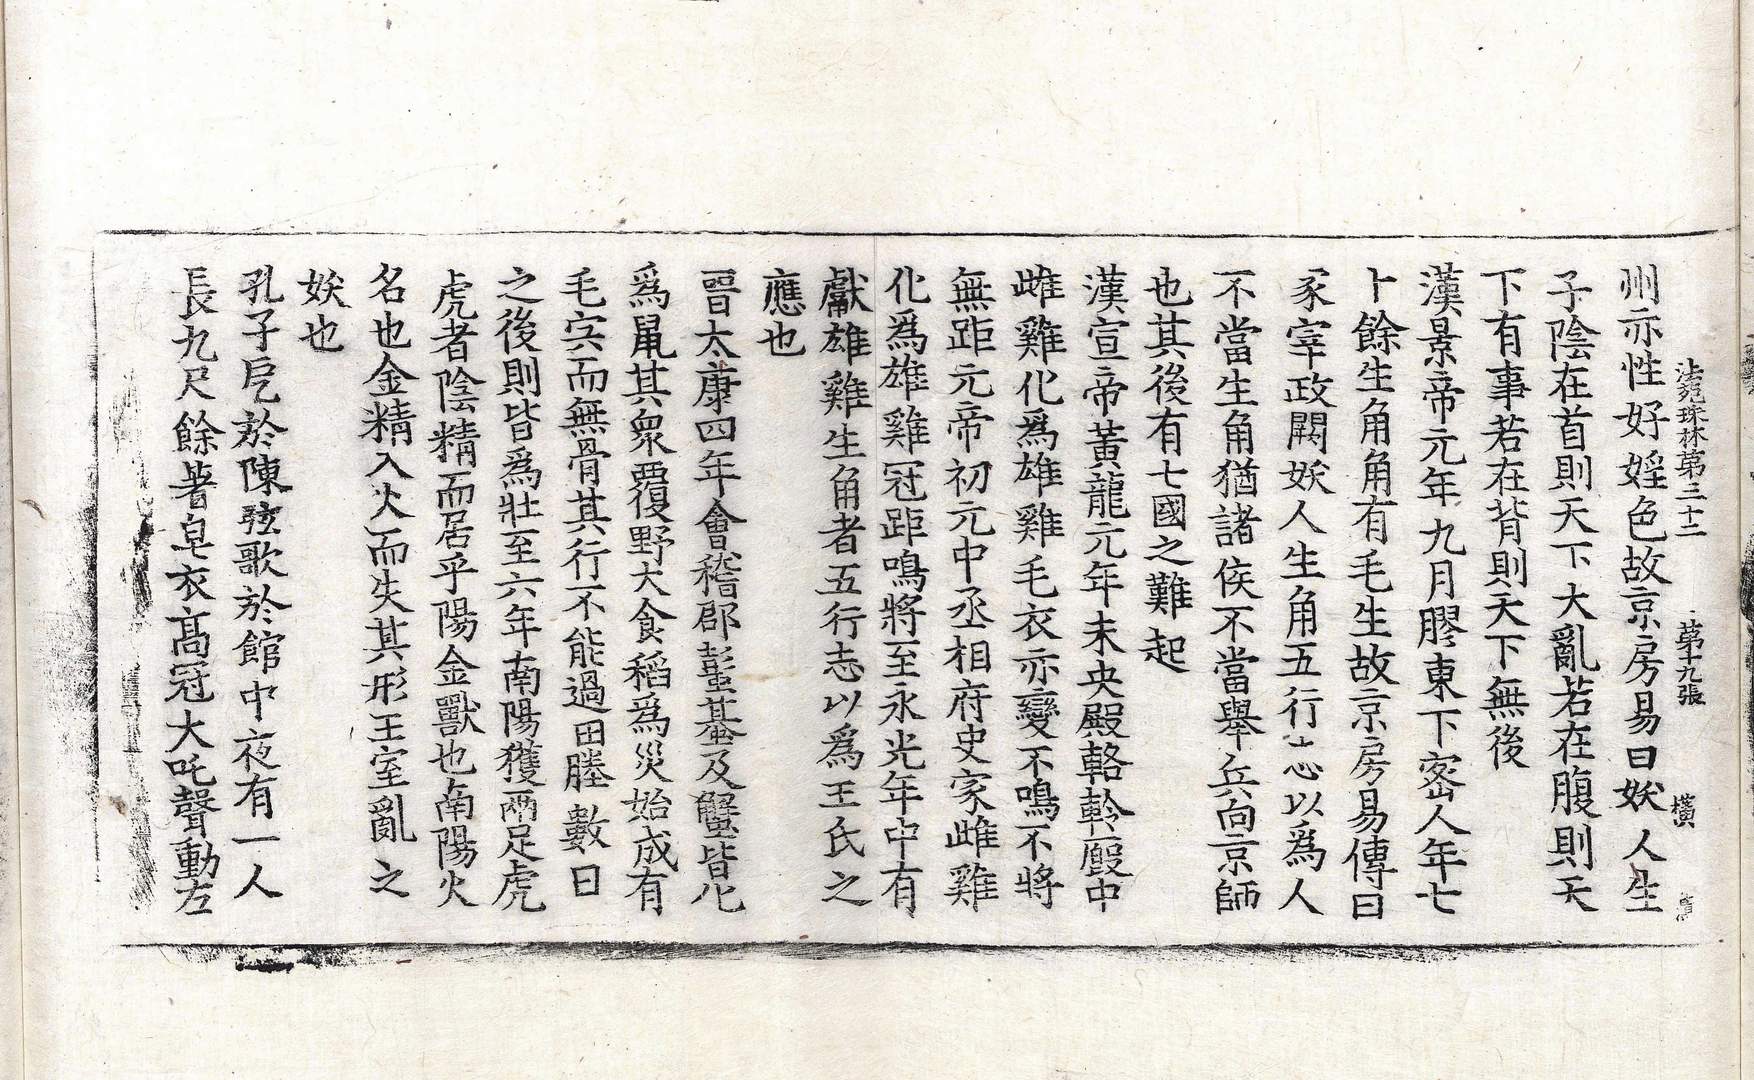 法苑珠林第三十二　第十九張　橫
州亦性好婬色故京房易曰妖人生
子陰在首則天下大亂若在腹則天
下有事若在背則天下無後
漢景帝元年九月膠東下密人年七
十餘生角角有毛生故京房易傳曰
冢宰政闕妖人生角五行志以爲人
不當生角猶諸侯不當舉兵向京師
也其後有七國之難起
漢宣帝黃龍元年未央殿輅軨廄中
雌雞化爲雄雞毛衣亦變不鳴不將
無距元帝初元中丞相府史家雌雞
化爲雄雞冠距鳴將至永光年中有
獻雄雞生角者五行志以爲王氏之
應也
晉太康四年會稽郡蟚蜞及蟹皆化
爲鼠其衆覆野大食稻爲災始成有
毛宍而無骨其行不能過田塍數日
之後則皆爲壯至六年南陽獲兩足虎
虎者陰精而居乎陽金獸也南陽火
名也金精入火而失其形王室亂之
妖也
孔子戹於陳弦歌於館中夜有一人
長九尺餘著皂衣高冠大吒聲動左